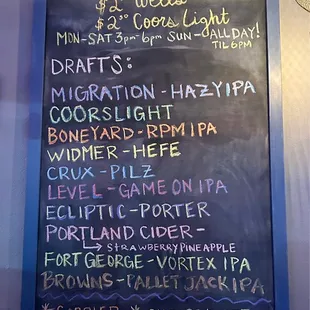 $2 Wells
$2 Coors Light
MON-SAT 3pm-6pm SUN-ALL DAY!
TIL 6PM
DRAFTS:
MIGRATION - HAZY IPA
COORSLIGHT
BONEYARD - RPM IPA
WIDMER - HEFE
CRUX - PILZ
LEVEL - GAME ON IPA
ECLIPTIC - PORTER
PORTLAND CIDER -
STRAWBERRY PINEAPPLE
FORT GEORGE - VORTEX IPA
BROWNS - PALLET JACK IPA